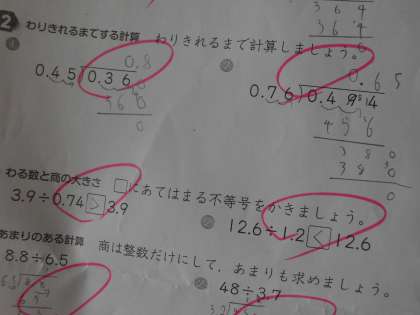 3 6 4
3 6 4
2 わりきれるまでする計算 わりきれるまで計算しましょう。
① 0.8
0.45)0.36
360
0
② 0.65
0.76)0.494
456
380
380
0
わる数と商の大きさ □にあてはまる不等号をかきましょう。
3.9÷0.74 > 3.9
② 12.6÷1.2 < 12.6
あまりのある計算 商は整数だけにして、あまりも求めましょう。
8.8÷6.5
② 48÷3.7